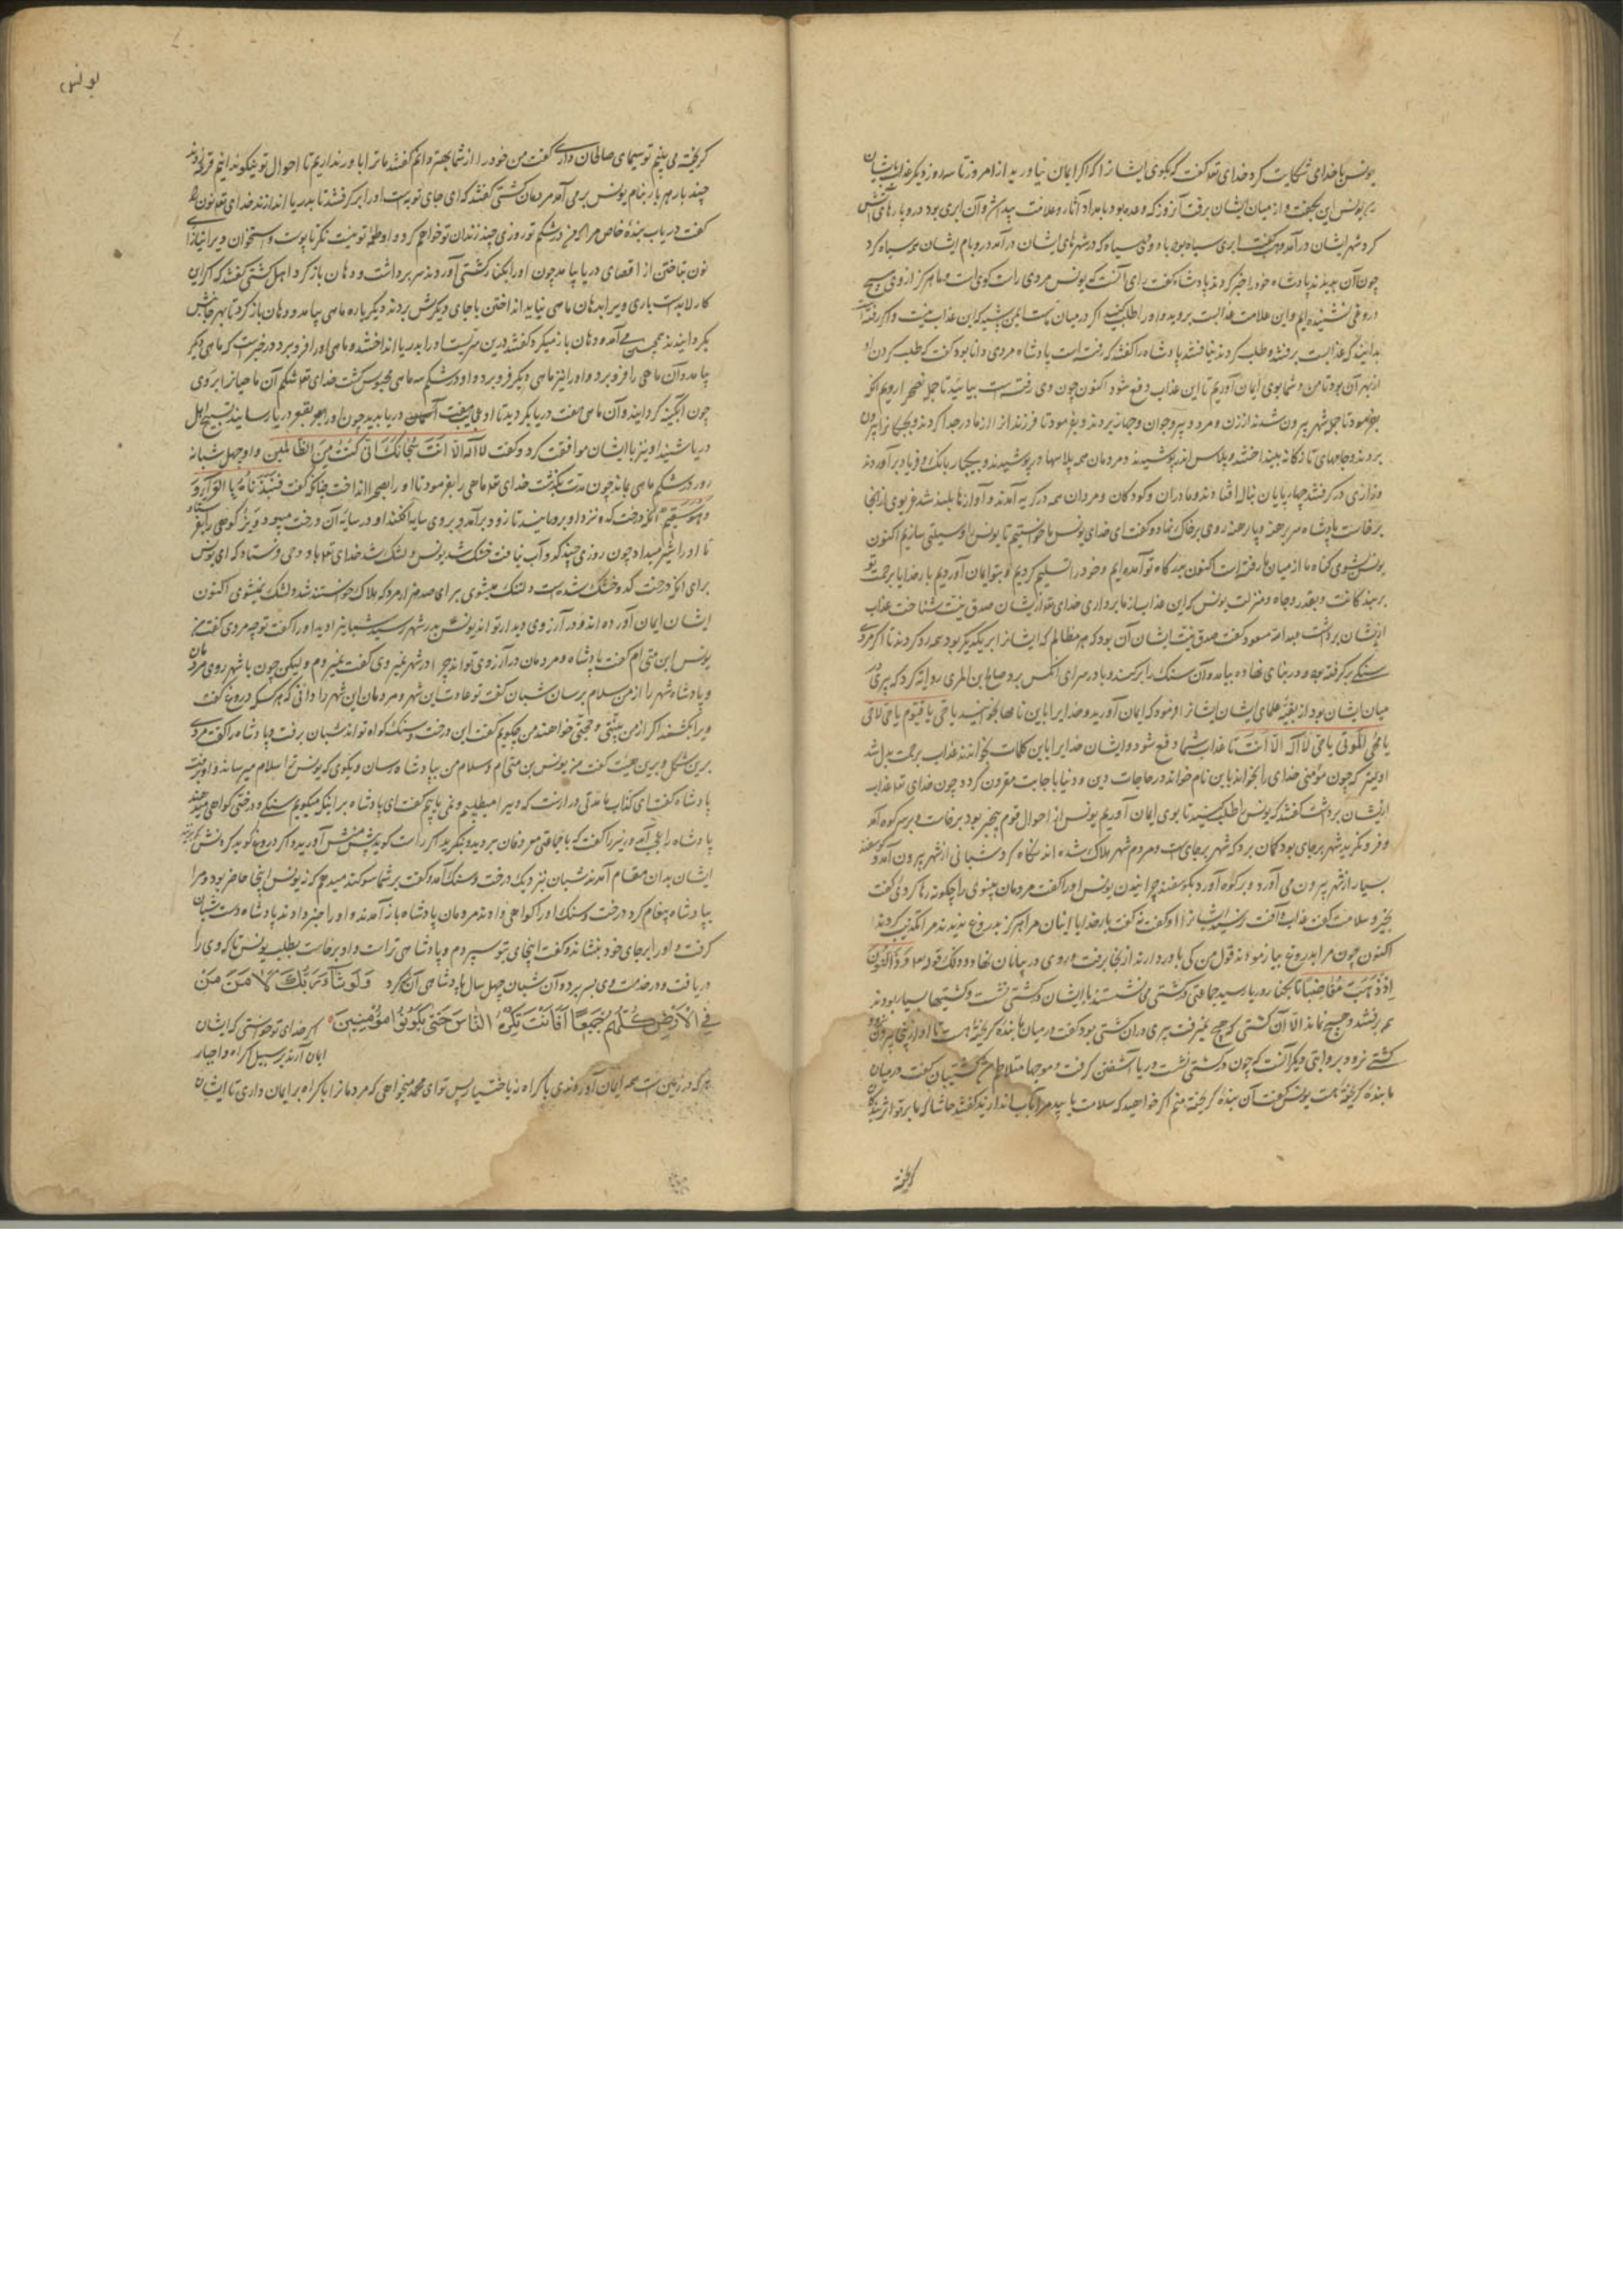 یونس با خدای شکایت کرد خدای تع گفت که بگوی ایشانرا که اگر ایمان نیاورید از امروز تا سه روز دیگر عذاب بایشان
یونس این بگفت و از میان ایشان برفت آنروز که وعده بود بامداد آثار و علامت پیدا شد و آن ابری بود در و پارهای آتش
کرد شهر ایشان درآمد و ابری سیاه بود با دودی سیاه که در شهرهای ایشان درآمد در و بام ایشان سیاه کرد
چون آن بدیدند پادشاه خود را خبر کردند پادشاه گفت رای آنست که یونس مردی راست گوی است و ما هرگز از وی هیچ
دروغی نشنیده‌ایم و این علامت عذابست بروید و او را طلب کنید اگر در میان ماست ایمن باشید که این عذاب نیست و اگر رفته است
بدانید که عذابست برفتند و طلب کردند نیافتند پادشاه را گفتند که رفته است پادشاه مردی دانا بود گفت که طلب کردن او
از بهر آن بود تا من و شما بوی ایمان آوریم تا این عذاب دفع شود اکنون چون وی رفته است بیائید تا جمله بصحرا رویم آنکه
بفرمود تا جمله شهر بیرون شدند از زن و مرد و پیر و جوان و چهارپای بردند و بفرمود تا فرزندانرا از مادر جدا کردند و بچگانرا بیرون
بردند و جامهای تازگانه بینداختند و پلاس اندر پوشیدند و مردمان همه پلاسها در پوشیدند و بیکبار بانگ و فریاد برآوردند
و زاری در گرفتند چهارپایان بناله افتادند و مادران و کودکان و مردان همه در گریه آمدند و آوازها بلند شد غریوی از آنجا
برخاست پادشاه سر برهنه و پا برهنه روی بر خاک نهاد و گفت ای خدای یونس ما خواستیم تا یونس را وسیلتی سازیم اکنون
یونس بشومی گناه ما از میان ما رفته است اکنون بدرگاه تو آمده‌ایم و خود را تسلیم کردیم و بتو ایمان آوردیم بار خدایا برحمت تو
و بقدر و جاه و منزلت یونس که این عذاب از ما برداری خدای تع از ایشان صدق نیت شناخت عذاب
از ایشان برداشت عبدالله مسعود گفت صدق نیت ایشان آن بود که هر مظالم که ایشانرا بر یکدیگر بود همه رد کردند تا اگر مردی
سنگی برگرفته بود و در بنای نهاده بیامد و آن سنگ را برکند و با در سرای آنکس برد و صالح بن المری روایت کرد که پیری در
میان ایشان بود از بقیهٔ علمای ایشان ایشانرا فرمود که ایمان آورید و خدایرا باین نامها بخوانید یا حی یا قیوم یا حی لا حی
یا محی الموتی یا حی لا اله الا انت تا عذاب شما دفع شود و ایشان خدایرا باین کلمات بخواندند عذاب برحمت بدل شد
که چون مؤمنی خدای را بخواند باین نام خواند در حاجات دین و دنیا باجابت مقرون گردد چون خدای تع عذاب
از ایشان برداشت گفتند که یونس را طلب کنید تا بوی ایمان آوریم یونس از احوال قوم بیخبر بود برخاست و بر سر کوه آمد
و فرو نگرید شهر برجای بود گمان برد که شهر برجای است و مردم شهر هلاک شده‌اند نگاه کرد شبانی از شهر بیرون آمد و گوسفند
بسیار از شهر بیرون می‌آورد و بر کوه آورد یونس او را گفت مردمان نینوی را چگونه رها کردی گفت
بخیر و سلامت گفت عذاب و آفت رسید ایشانرا او گفت نه گفت بار خدایا اینان مرا هرگز بدروغ ندیدند مرا تکذیب کردند
اکنون چون مرا بدروغ بیازمودند قول من کی باور دارند از آنجا برفت و روی در بیابان نهاد و ذلک قوله تع و ذا النون
اذ ذهب مغاضبا تا بکنار دریا رسید جماعتی در کشتی می‌نشستند با ایشان در کشتی نشست و کشتیها بسیار بودند
همه برفتند و هیچ نماند الا آن کشتی که هیچ نمیرفت پیری در آن کشتی بود گفت در میان ما بندهٔ گریخته هست تا او از اینجا بیرون نرود
کشتی نرود و بروایتی دیگر آنست که چون در کشتی نشست دریا آشفتن گرفت و موجها متلاطم شد کشتیبان گفت در میان
ما بندهٔ گریخته هست یونس گفت آن بندهٔ گریخته منم اگر خواهید که سلامت یابید مرا بآب اندازید گفتند حاشا که ما بر تو اثر بندگان
گریخته
یونس
گریخته می‌بینیم تو سیمای صالحان داری گفت من خود را از شما بهتر دانم گفتند ما ترا باور نداریم تا احوال تو نیکو بدانیم قرعه زدند
چند بار هر بار بنام یونس برمی‌آمد مردمان کشتی گفتند که ای جای نوبتست او را برگرفتند تا بدریا اندازند خدای تع نون را
گفت دریاب بندهٔ خاص مرا که در شکم تو روزی چند زندان تو خواهم کرد و او طعمهٔ تو نیست نگر تا پوست و استخوان ویرا نیازاری
نون بتاختن از اقصای دریا بیامد چون او را بکنار کشتی آوردند سر برداشت و دهان باز کرد اهل کشتی گفتند که اگر این
کار لابدست باری ویرا بدهان ماهی نباید انداختن با جای دیگرش بردند دیگر باره ماهی بیامد و دهان باز کرد تا بهر جانبش
بگردانیدند همچنین می‌آمد و دهان باز میکرد گفتند درین سریست او را بدریا انداختند و ماهی او را فرو برد و در خبر است که ماهی دیگر
بیامد و آن ماهی را فرو برد و او را نیز ماهی دیگر فرو برد و او در شکم سه ماهی محبوس گشت خدای تع شکم آن ماهیانرا بر وی
چون آبگینه گردانید و آن ماهی هفت دریا بگردید تا او عجایب هفت دریا بدید چون او را بقعر دریا رسانید تسبیح اهل
دریا شنید او نیز با ایشان موافقت کرد و گفت لا اله الا انت سبحانک انی کنت من الظالمین و او چهل شبانه
روز در شکم ماهی بماند چون مدت بگذشت خدای تع ماهی را بفرمود تا او را بصحرا انداخت چنانکه گفت فنبذناه بالعرآء
وهو سقیم آنکه درخت کدو نزد او برویانید تا زود برآمد و بر وی سایه افکند او در سایهٔ آن درخت میبود و بز کوهی را بفرستاد
تا او را شیر میداد چون روزی چند کدو آب نیافت خشک شد یونس دلتنک شد خدای تع باو وحی فرستاد که ای یونس
برای آنکه درخت کدو خشک شدست دلتنک میشوی برای صد هزار مرد که هلاک خواستند شد دلتنک نمیشوی اکنون
ایشان ایمان آورده‌اند و در آرزوی دیدار تواند یونس بدر شهر رسید شبانی را دید او را گفت تو چه مردی گفت من
یونس ابن متی‌ام گفت پادشاه و مردمان در آرزوی تواند چرا در شهر نمیروی گفت نمیروم ولیکن چون با شهر روی مردمان
و پادشاه شهر را از من سلام برسان شبان گفت تو عادت این شهر و مردمان این شهر را دانی که هر کسی که دروغ گفت
ویرا بکشند اگر از من بینتی و حجتی خواهند من چگویم گفت این درخت و سنگ گواه تواند شبان برفت و پادشاه را گفت مردی
برین شکل و برین هیئت گفت من یونس بن متی‌ام و سلام من بپادشاه رسان و بگوی که یونس ترا سلام میرساند و او برفت
پادشاه گفت ای کذاب ما مدتی درازست که ویرا میطلبیم و نمی‌یابیم گفت ای پادشاه بر اینکه میگویم سنگی و درختی گواهی میدهند
پادشاه را عجب آمد وزیر را گفت که با جماعتی معروفان بروید و بنگرید اگر راست گوید پیش منش آورید و اگر دروغ گوید گردنش بزنید
ایشان بدان مقام آمدند شبان نزدیک درخت و سنگ آمد و گفت بر شما سوگند میدهم که نه یونس اینجا حاضر بود و مرا
بپادشاه پیغام کرد درخت و سنگ او را گواهی دادند مردمان پادشاه باز آمدند و او را خبر دادند پادشاه دست شبان
گرفت و او را برجای خود بنشاند و گفت اینجای بتو سپردم و پادشاهی تراست و او برخاست بطلب یونس تا که وی را
دریافت و در خدمت وی بسر برد و آن شبان چهل سال پادشاهی آن کرد ولو شآء ربک لآمن من
فی الارض کلهم جمیعا افانت تکره الناس حتی یکونوا مؤمنین اگر خدای تو خواستی که ایشان
ایمان آرند بر سبیل اکراه و اجبار
هر که در زمین است همه ایمان آوردندی باکراه نه باختیار پس تو ای محمد میخواهی که مردمانرا باکراه بر ایمان داری تا ایشان